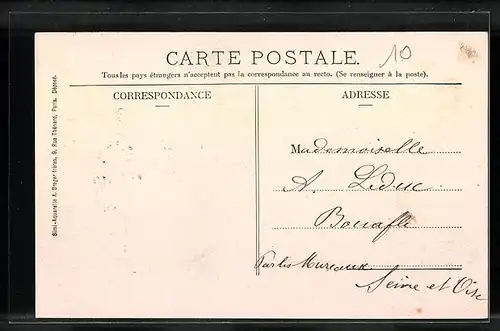 CARTE POSTALE.
10
Tous les pays étrangers n'acceptent pas la correspondance au recto. (Se renseigner à la poste).
CORRESPONDANCE
ADRESSE
Mademoiselle
A. Leduc
Bouafle
Par les Mureaux
Seine et Oise
Simi-Aquarelle A. Breger frères, 9, Rue Thénard, Paris. Déposé.